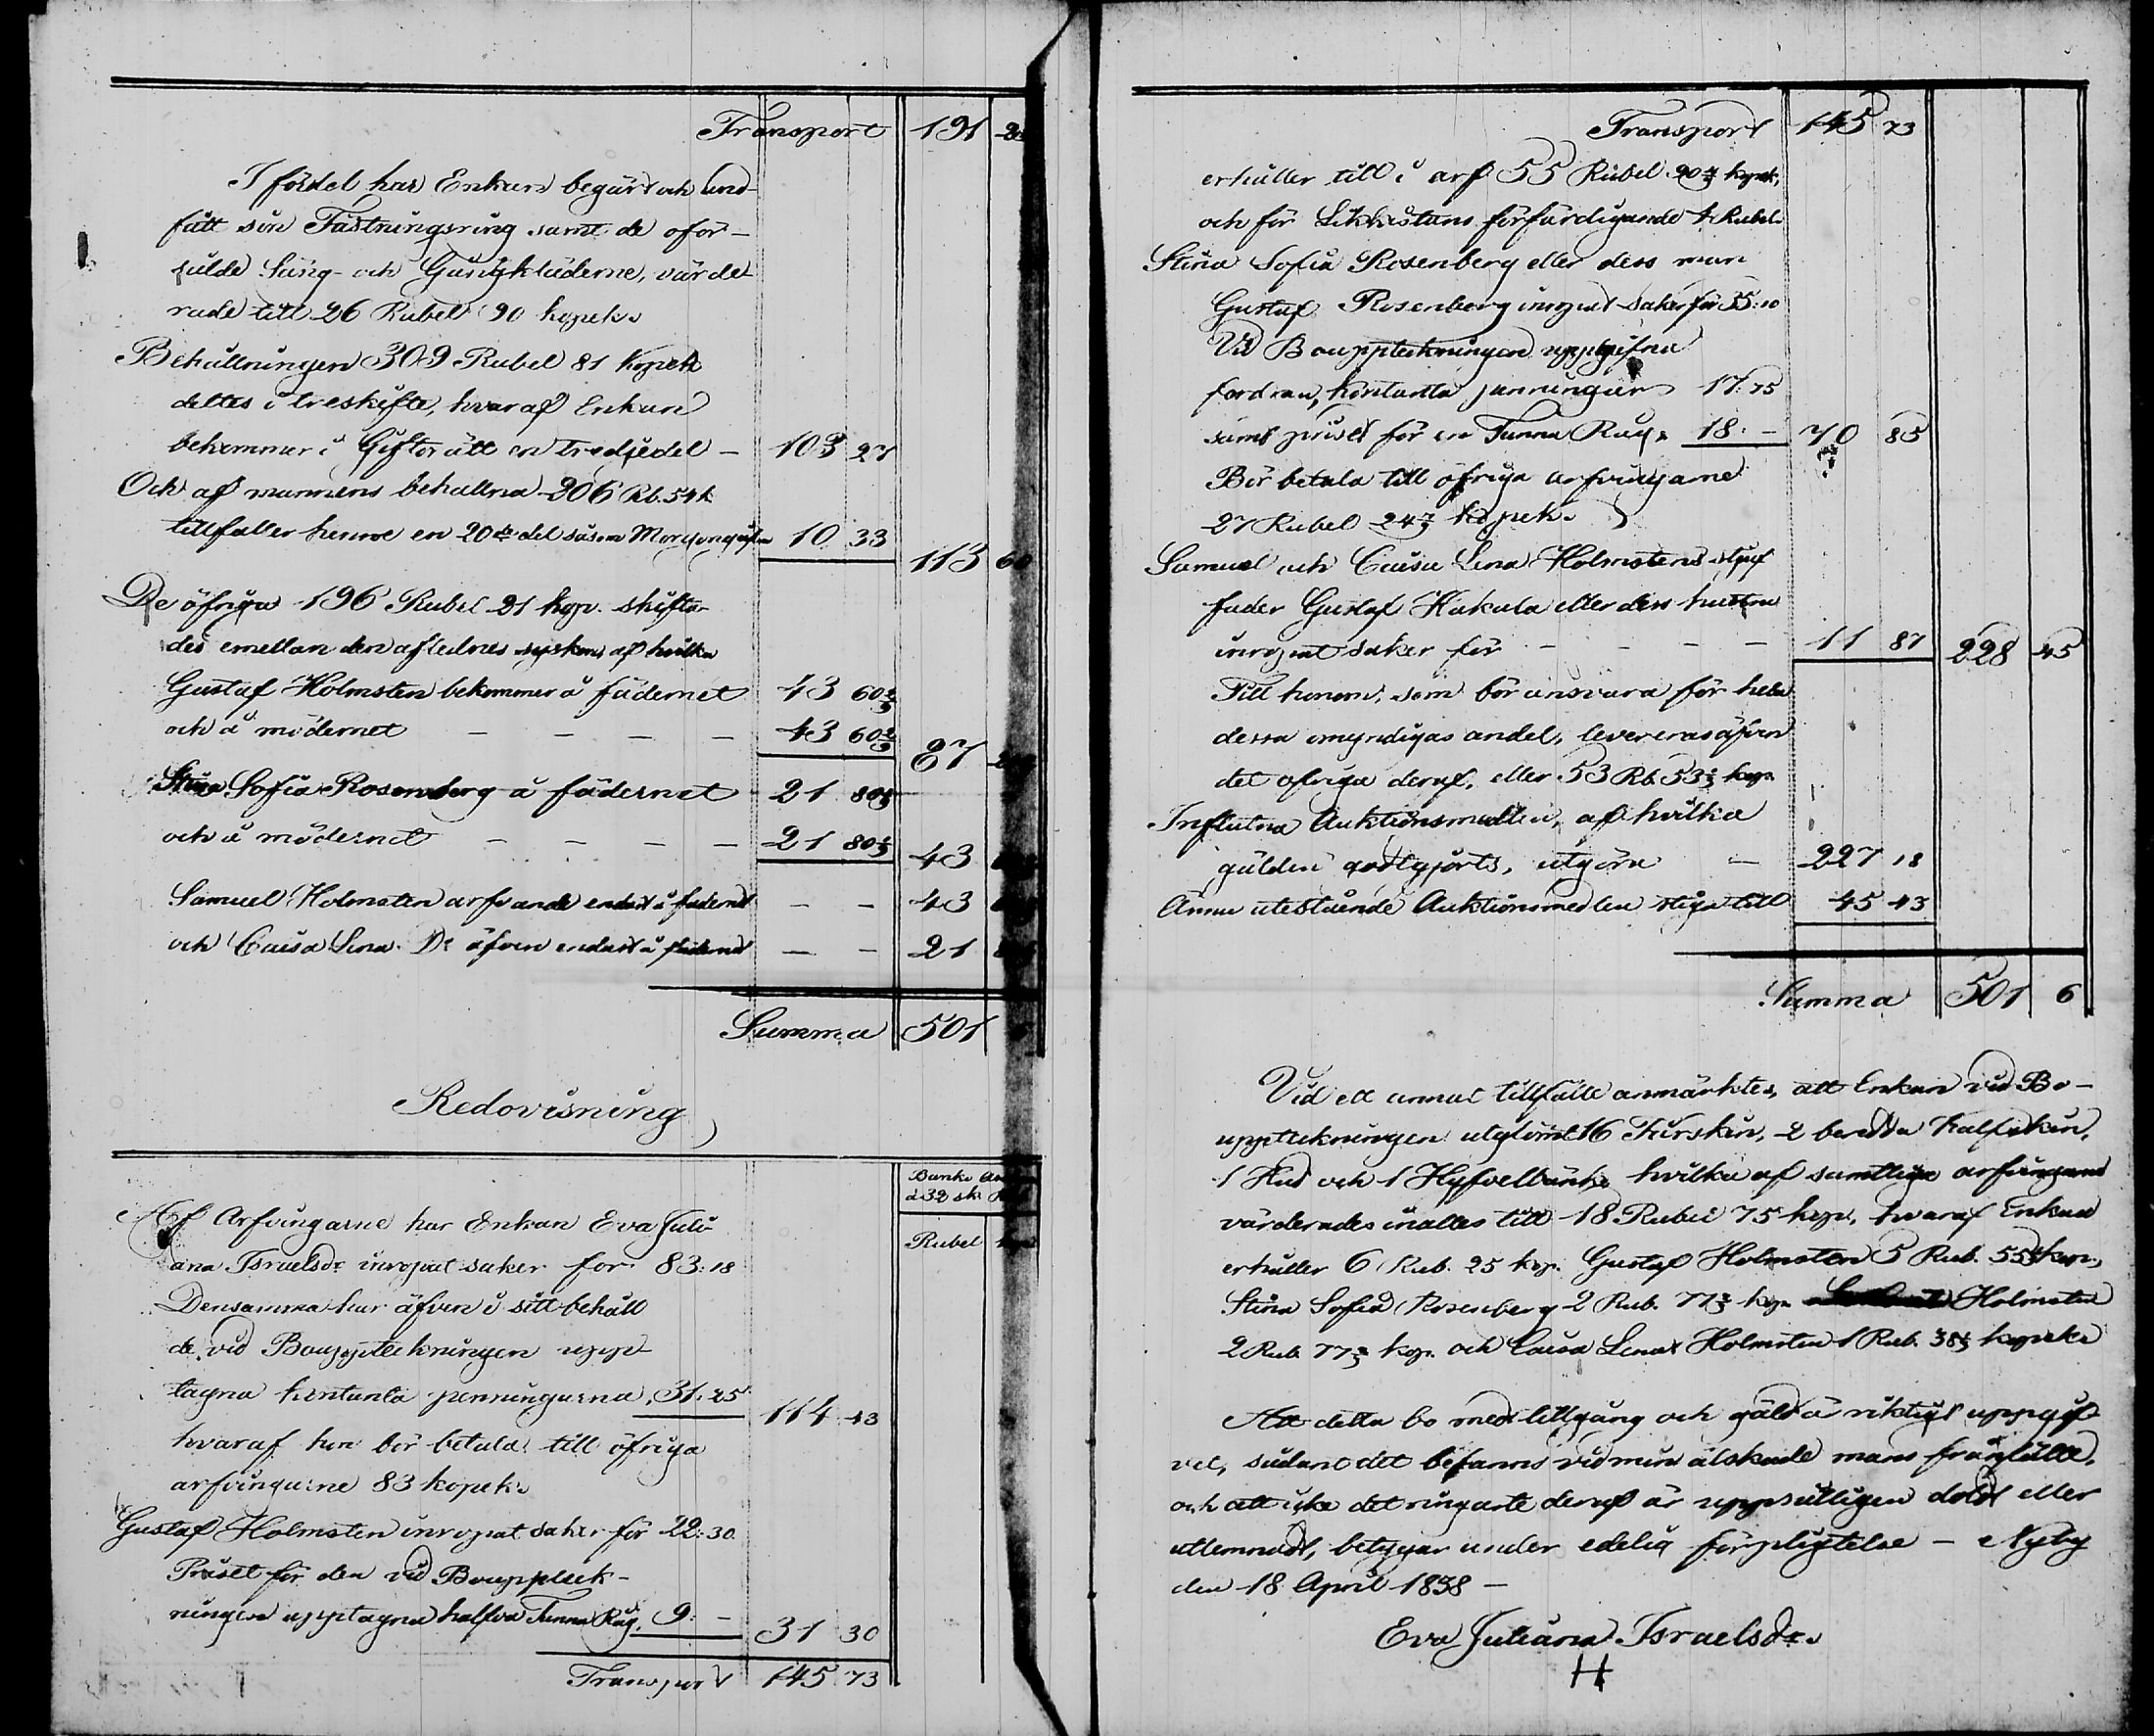 Transport 191
I fördel har Enkan begärt och und-
fått sin Fästningsring samt de oför-
sålde Säng- och Gångkläderne, värde-
rade till 26 Rubel 90 kopek.
Behållningen 309 Rubel 81 kopek
deltes i treskifte, hvaraf Enkan
bekommer i Giftorätt en tredjedel - 103 27
Och af mannens behållna 206 Rb. 54 k
tillfaller henne en 20de del såsom Morgongåfva 10 33
113 60
De öfriga 196 Rubel 21 kop. skifta-
des emellan den aflednes syskon, af hvilka
Gustaf Holmsten bekommer å fädernet 43 60 2/9
och å mödernet - - - - 43 60 2/9
87
Stina Sofia Rosenberg å fädernet 21 80 1/9
och å mödernet - - - - 21 80 1/9
43
Samuel Holmsten arfvande endast å fädernet - - 43
och Caisa Lena Do äfven endast å fädernet - - 21
Summa 501
Redovisning
Banko
à 32 sk
Rubel
Af Arfvingarne har Enkan Eva Juli-
ana Israelsdr inropat saker för 83:18
Densamma har äfven i sitt behåll
de vid Bouppteckningen upp-
tagna kontanta penningarna, 31:25
114 43
hvaraf hon bör betala till öfriga
arfvingarne 83 kopek.
Gustaf Holmsten inropat saker för 22:30
Priset för den vid Bouppteck-
ningen upptagna halfva Tunna Råg, 9:-
31 30
Transport 145 73
Transport 145 73
erhåller till i arf 55 Rubel 90 4/9 kopek,
och för Likkistans förfärdigande 4 Rubel.
Stina Sofia Rosenberg eller dess man
Gustaf Rosenberg inropat saker för 35:10
Vid Bouppteckningen uppgifna
fordran, kontanta penningar 17:75
samt priset för en Tunna Råg, 18:- 70 85
Bör betala till öfriga arfvingarne
27 Rubel 24 7/9 kopek.
Samuel och Caisa Lena Holmstens styf
fader Gustaf Kakula eller dess hustru
inropat saker för - - - - 11 87 228 45
Till honom, som bör ansvara för hela
dessa omyndigas andel, levereras äfven
det öfriga deraf, eller 53 Rb. 53 1/3 kop.
Influtna Auktionsmedlen, af hvilka
gälden godtgjorts, utgöra - 227 18
Ännu utestående Auktionsmedlen stiga till 45 43
Summa 501 6
Vid ett annat tillfälle anmärktes, att Enkan vid Bo-
uppteckningen utglömt 16 Fårskin, 2 beredda Kalfskin,
1 Hud och 1 Hyfvelbänk, hvilka af samtliga arfvingarne
värderades inalles till 18 Rubel 75 kop., hvaraf Enkan
erhåller 6 Rub. 25 kop. Gustaf Holmsten 5 Rub. 55 5/9 kop.,
Stina Sofia Rosenberg 2 Rub. 77 7/9 kop. Holmsten
2 Rub. 77 7/9 kop. och Caisa Lena Holmsten 1 Rub. 38 8/9 kopek.
Att detta bo med tillgång och gäld är riktigt uppgif-
vet, sådant det befanns vid min älskade mans frånfälle,
och att icke det ringaste deraf är uppsåtligen doldt eller
utlemnadt, betygar under edelig förpligtelse - Nyby
den 18 April 1838 -
Eva Juliana Israelsdr.
H